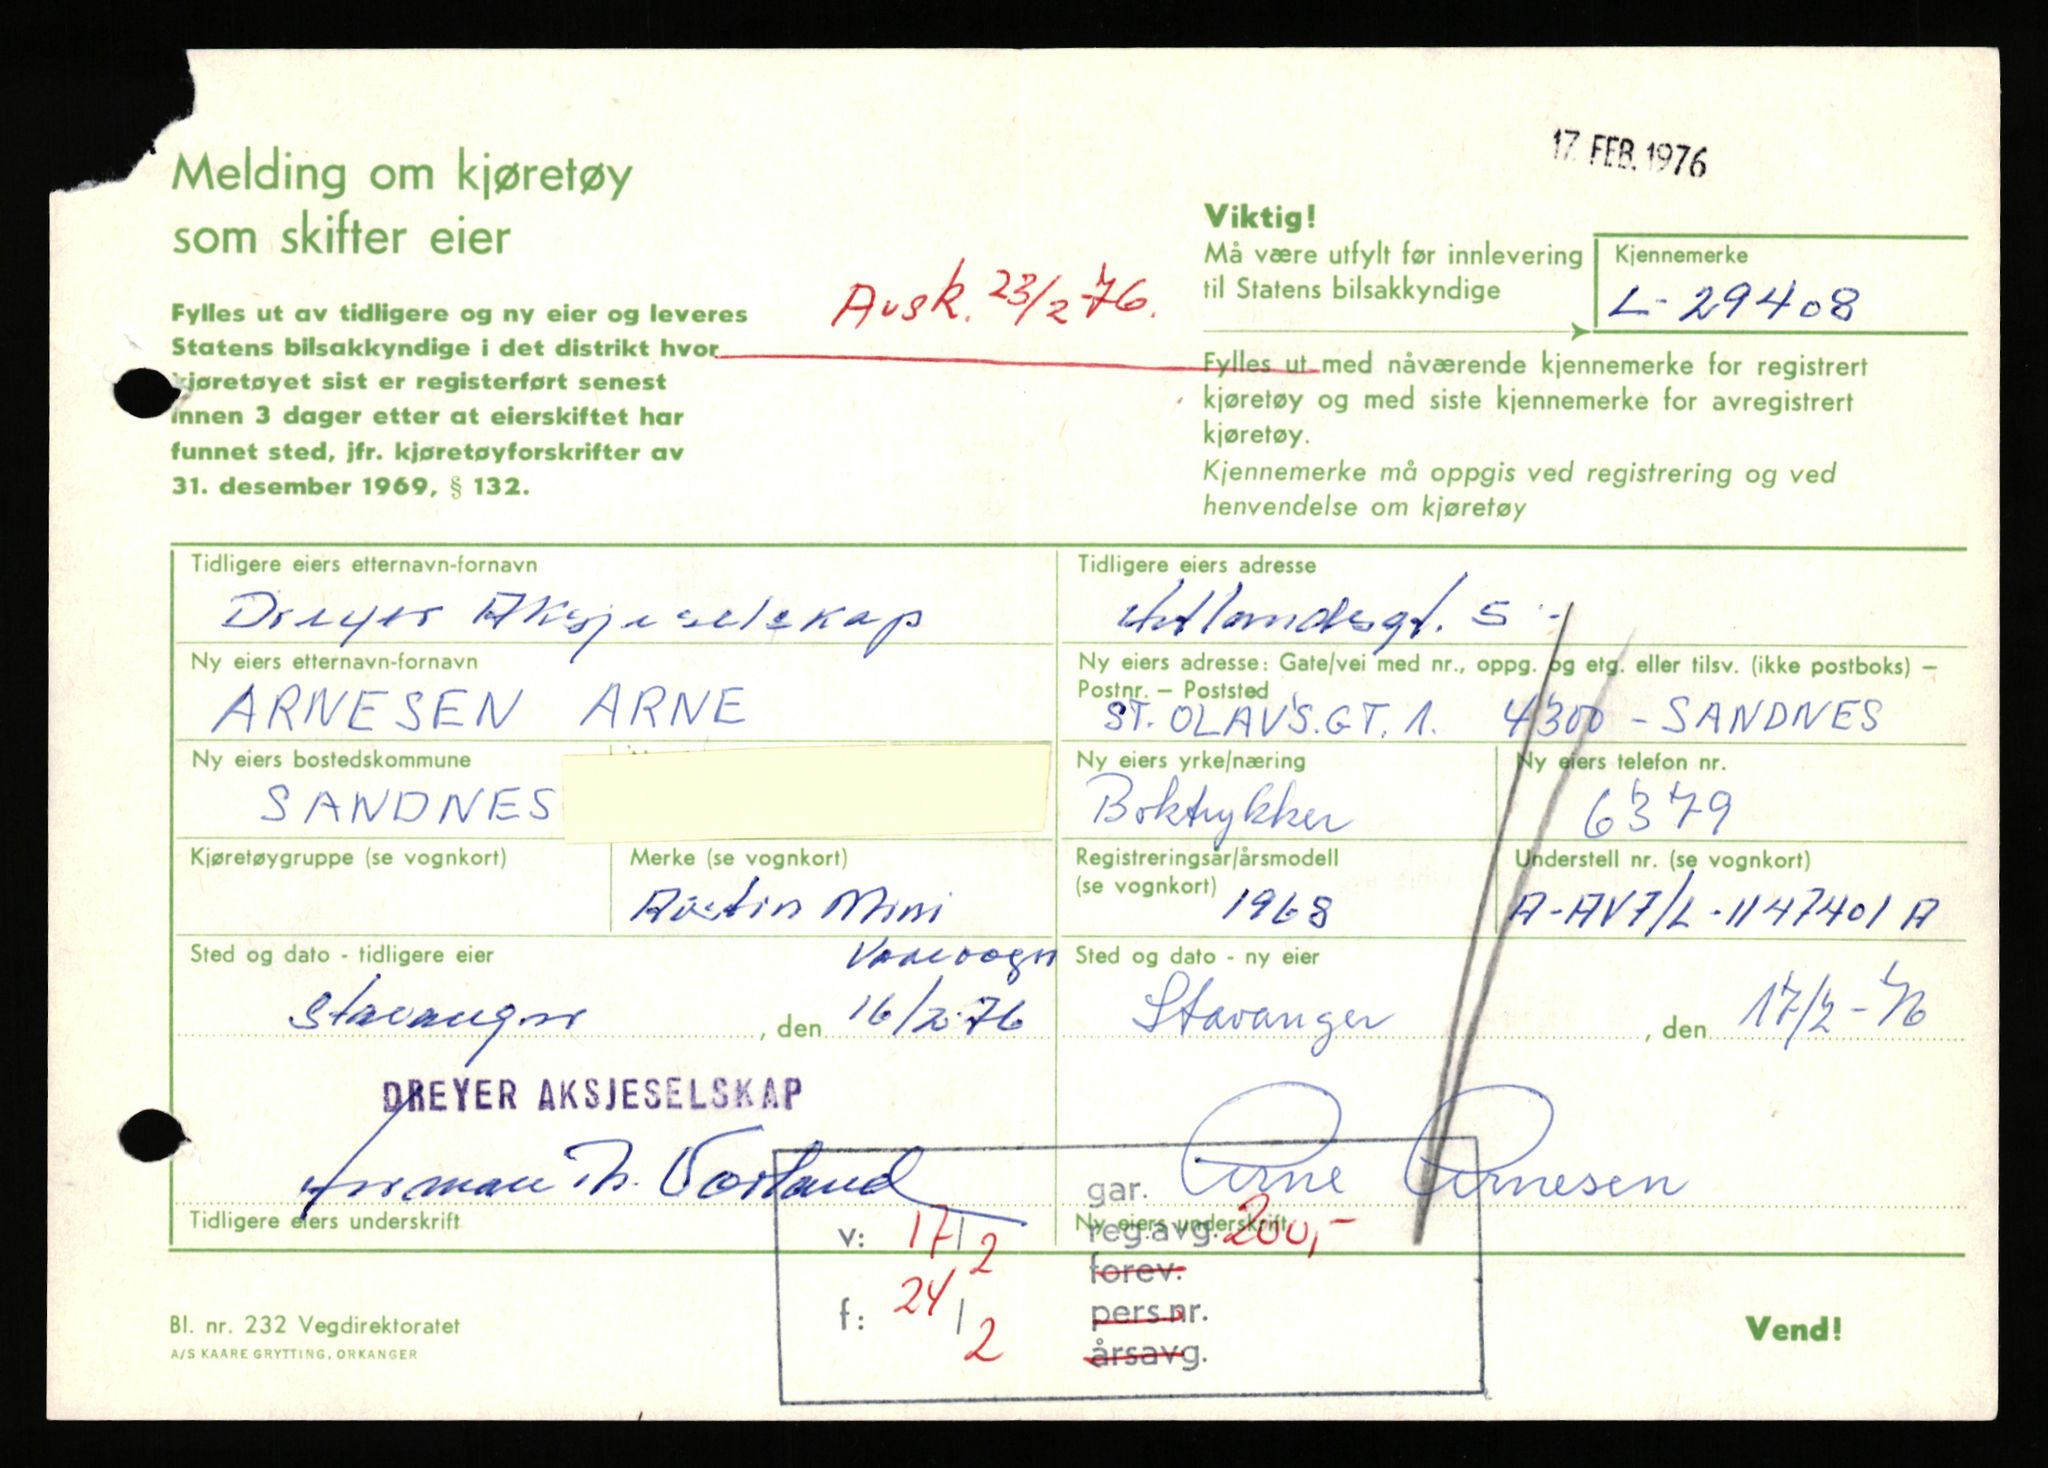 17. FEB. 1976
Melding om kjøretøy
som skifter eier
Viktig!
Må være utfylt før innlevering
til Statens bilsakkyndige
Kjennemerke
L-29408
Avsk. 23/2-76.
Fylles ut av tidligere og ny eier og leveres
Statens bilsakkyndige i det distrikt hvor
kjøretøyet sist er registerført senest
innen 3 dager etter at eierskiftet har
funnet sted, jfr. kjøretøyforskrifter av
31. desember 1969, § 132.
Fylles ut med nåværende kjennemerke for registrert
kjøretøy og med siste kjennemerke for avregistrert
kjøretøy.
Kjennemerke må oppgis ved registrering og ved
henvendelse om kjøretøy
Tidligere eiers etternavn-fornavn
Dreyer Aksjeselskap
Tidligere eiers adresse
5
Ny eiers etternavn-fornavn
ARNESEN ARNE
Ny eiers adresse: Gate/vei med nr., oppg. og etg. eller tilsv. (ikke postboks) –
Postnr. – Poststed
ST. OLAVS.GT. 1. 4300 - SANDNES
Ny eiers bostedskommune
SANDNES
Ny eiers yrke/næring
Boktrykker
Ny eiers telefon nr.
6379
Kjøretøygruppe (se vognkort)
Merke (se vognkort)
Austin Mini
Varevogn
Registreringsår/årsmodell
(se vognkort)
1968
Understell nr. (se vognkort)
A-AV7/L-1147401 A
Sted og dato - tidligere eier
Stavanger, den 16/2-76
Sted og dato - ny eier
Stavanger, den 17/2-76
DREYER AKSJESELSKAP
Arne Arnesen
Tidligere eiers underskrift
Ny eiers underskrift
v: 17/2
f: 24/2
gar.
reg.avg. 200,-
forev.
pers.nr.
årsavg.
Bl. nr. 232 Vegdirektoratet
A/S KAARE GRYTTING, ORKANGER
Vend!